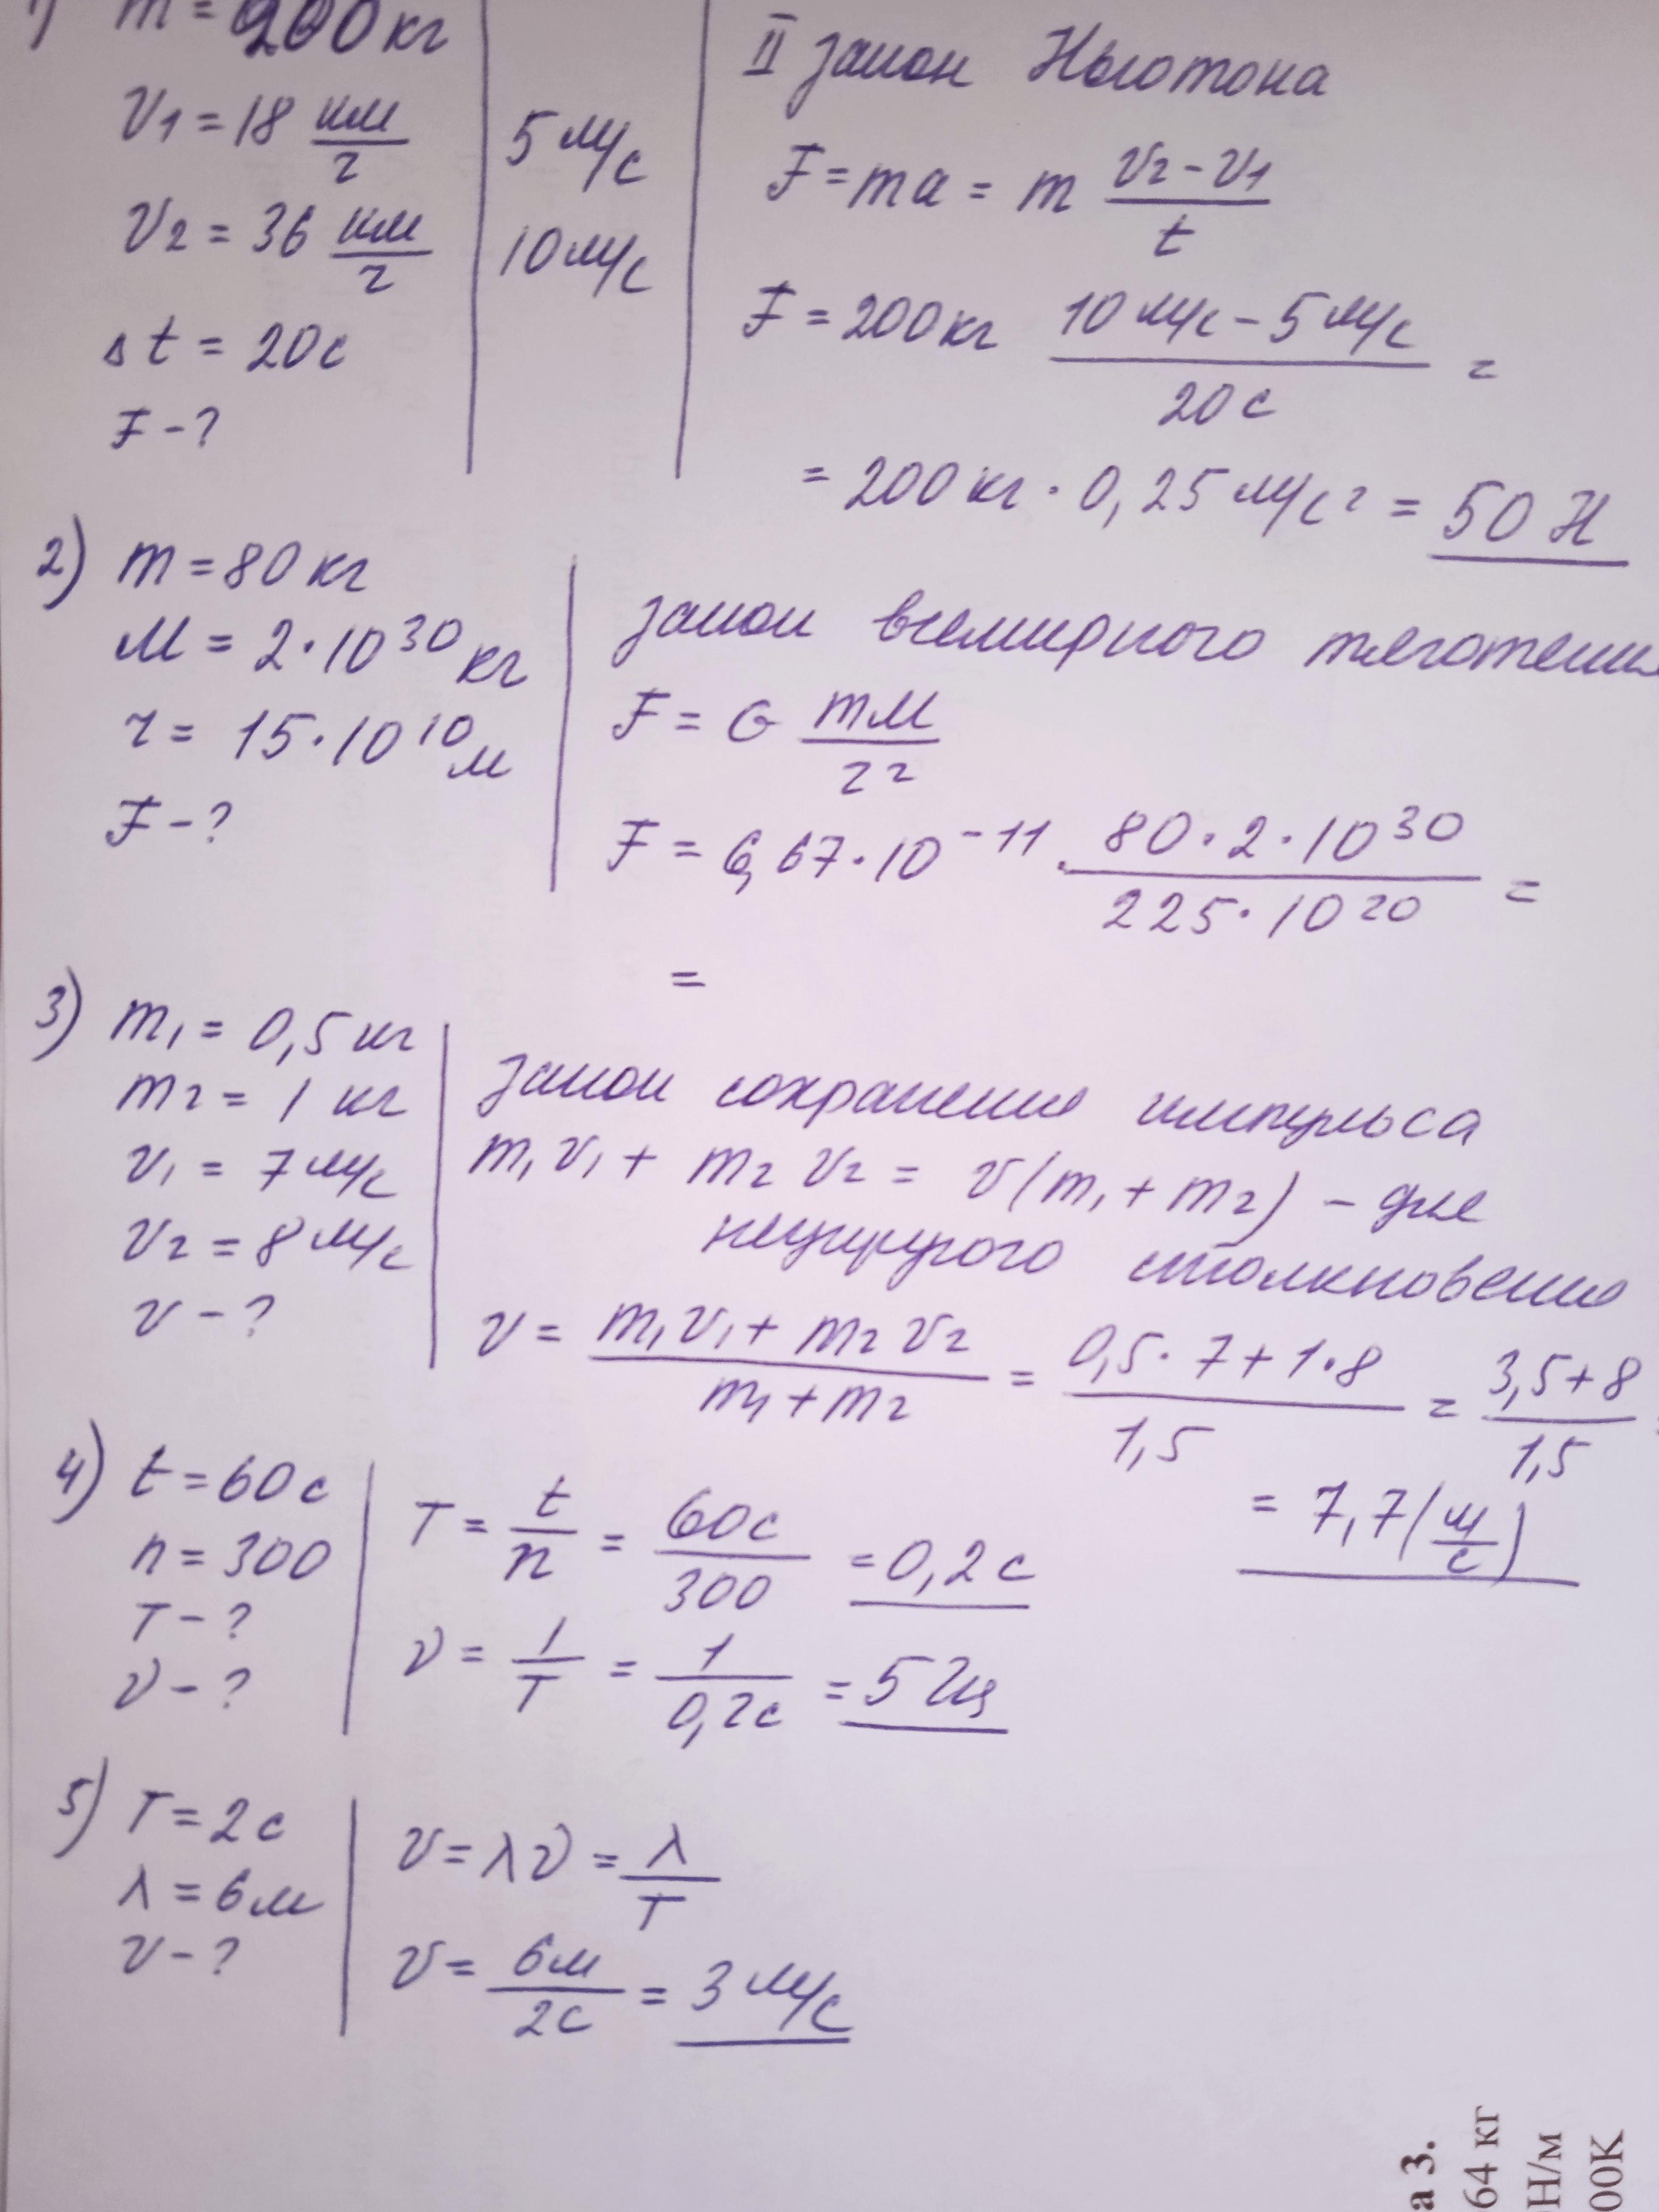 1) m = 200 кг
v1 = 18 км/ч | 5 м/с
v2 = 36 км/ч | 10 м/с
Δt = 20 с
F - ?
II закон Ньютона
F = ma = m (v2 - v1)/t
F = 200 кг (10 м/с - 5 м/с)/20 с =
= 200 кг · 0,25 м/с² = 50 Н
2) m = 80 кг
M = 2·10³⁰ кг
r = 15·10¹⁰ м
F - ?
закон всемирного тяготения
F = G mM/r²
F = 6,67·10⁻¹¹ · 80·2·10³⁰/225·10²⁰ =
=
3) m1 = 0,5 кг
m2 = 1 кг
v1 = 7 м/с
v2 = 8 м/с
v - ?
закон сохранения импульса
m1v1 + m2v2 = v(m1 + m2) - для
неупругого столкновения
v = (m1v1 + m2v2)/(m1 + m2) = (0,5·7 + 1·8)/1,5 = (3,5 + 8)/1,5
= 7,7 (м/с)
4) t = 60 с
n = 300
T - ?
ν - ?
T = t/n = 60 с/300 = 0,2 с
ν = 1/T = 1/0,2 с = 5 Гц
5) T = 2 с
λ = 6 м
v - ?
v = λν = λ/T
v = 6 м/2 с = 3 м/с
а 3.
64 кг
Н/м
00К